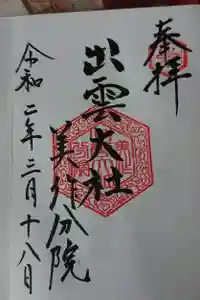 奉拝
出雲大社
美作分院
令和二年三月十八日